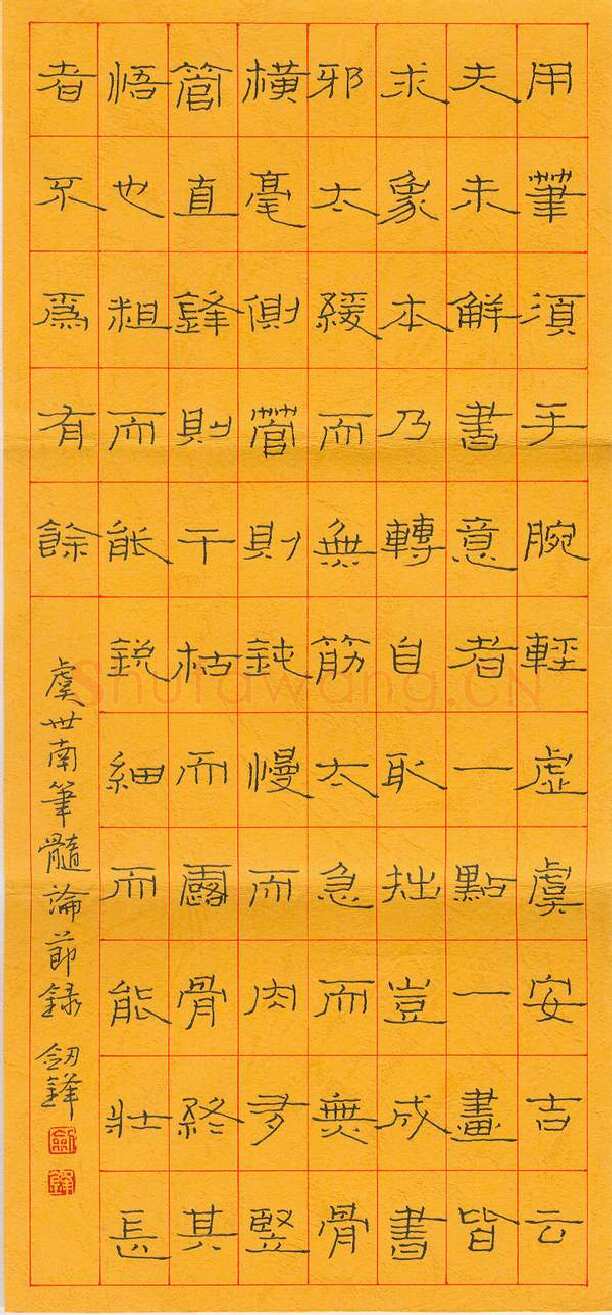 用筆須手腕輕虛虞安吉云
夫未解書意者一點一畫皆
求象本乃轉自取拙豈成書
邪太緩而無筋太急而無骨
橫毫側管則鈍慢而肉多豎
管直鋒則干枯而露骨終其
悟也粗而能銳細而能壯長
者不爲有餘
虞世南筆髓論節錄 釼鋒
劍
鋒
Shufawang.CN